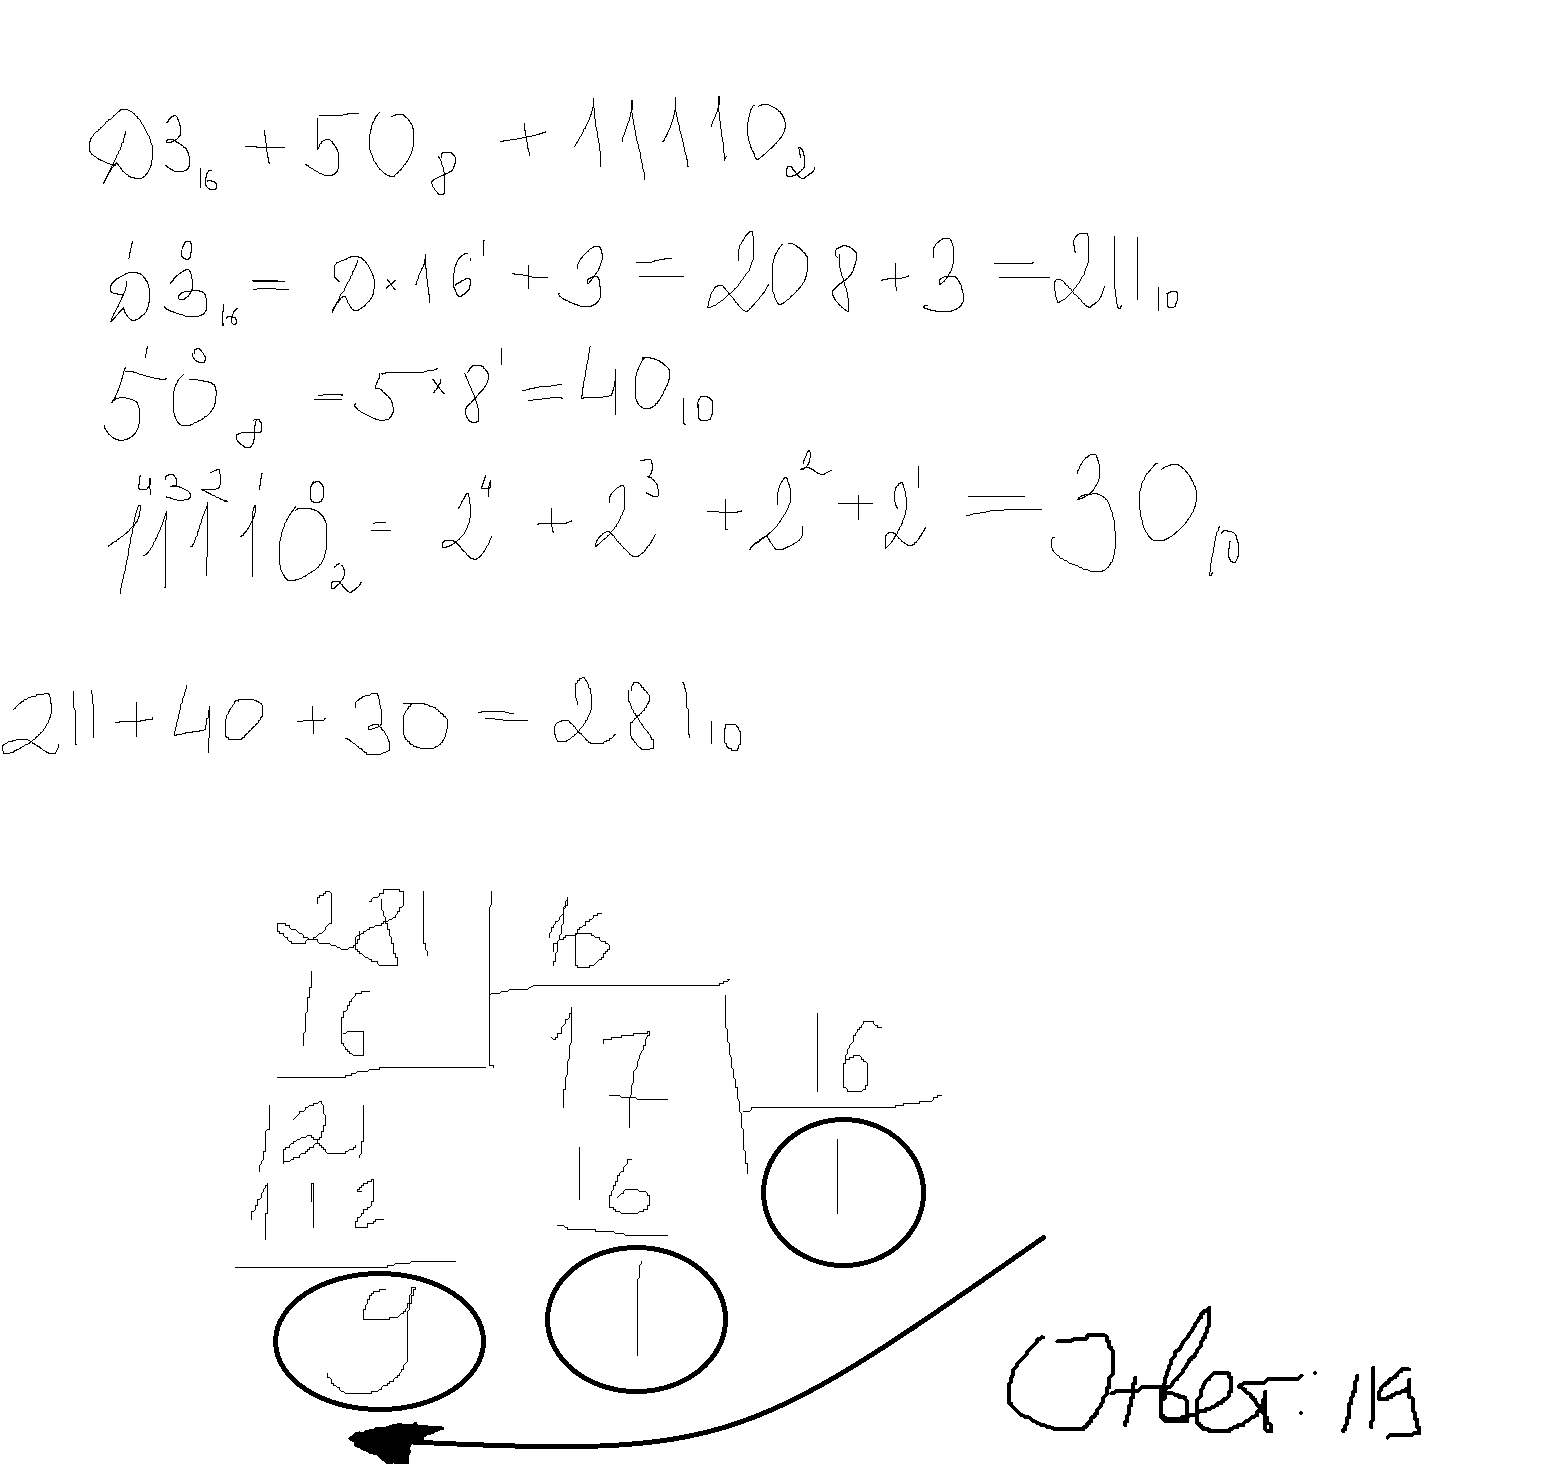 D3₁₆ + 50₈ + 11110₂
1 0
D3₁₆ = D × 16¹ + 3 = 208 + 3 = 211₁₀
1 0
50₈ = 5 × 8¹ = 40₁₀
4 3 2 1 0
11110₂ = 2⁴ + 2³ + 2² + 2¹ = 30₁₀
211 + 40 + 30 = 281₁₀
281 16
16 17 16
121 16 1
112 1
9
Ответ: 119